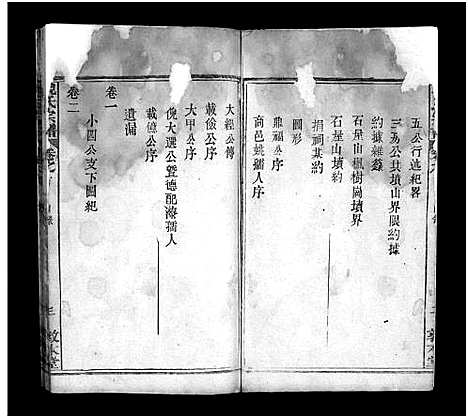 五公行述紀畧
三房公共墳山界限約據
約據雜錄
石星山楓樹岡墳界
石星山墳約
捐祠基約
圖形
鼎福公序
商邑姚孺人序
大經公傳
載儉公序
大甲公序
倪大選公暨德配濮孺人
載德公序
遺漏
卷一
卷二
小四公支下圖紀
三
敦本堂